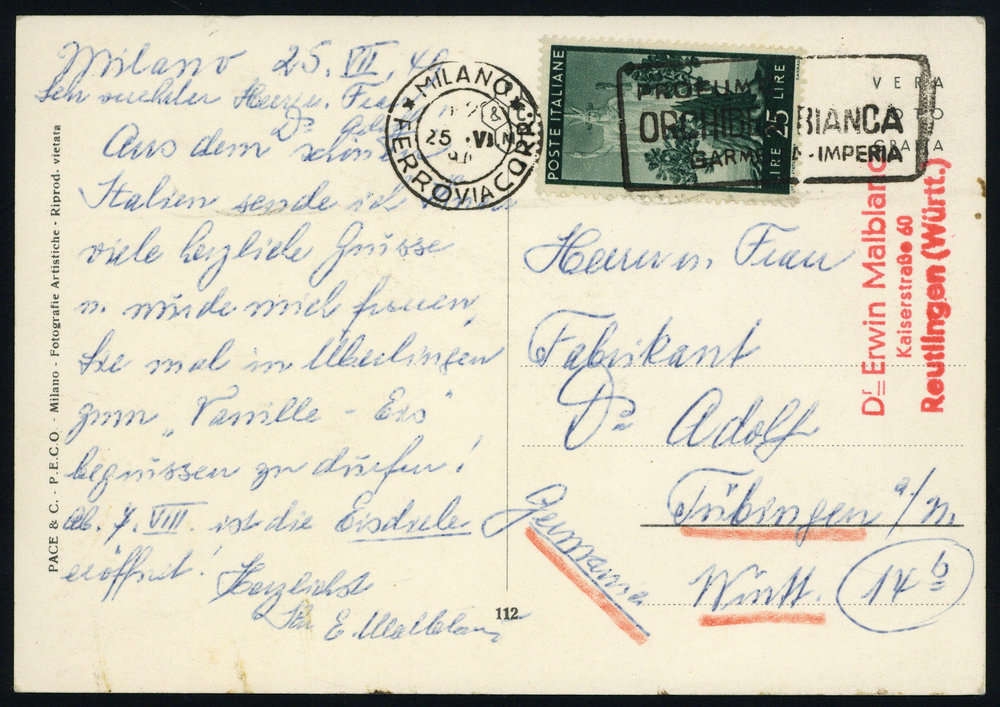 Milano 25. VII. 4
Sehr verehrter Herr u. Frau
Dr Adolf
Aus dem schönen
Italien sende ich Ihnen
viele herzliche Grüsse
u. würde mich freuen,
Sie mal in Überlingen
zum „Vanille-Eis"
begrüssen zu dürfen!
ab. 7. VIII. ist die Eisdiele
eröffnet!
Herzlichst
Ihr E. Malblanc
PACE & C. - P.E.C.O. - Milano - Fotografie Artistiche - Riprod. vietata
112
MILANO
25 . VII
FERROVIA CORR.
POSTE ITALIANE
LIRE 25 LIRE
PROFUM
ORCHIDEA BIANCA
GARM - IMPERIA
VERA
FOTO
GRAFIA
Dr Erwin Malblanc
Kaiserstraße 60
Reutlingen (Württ.)
Herrn u. Frau
Fabrikant
Dr Adolff
Tübingen a/N.
Württ. 14 b
Germania